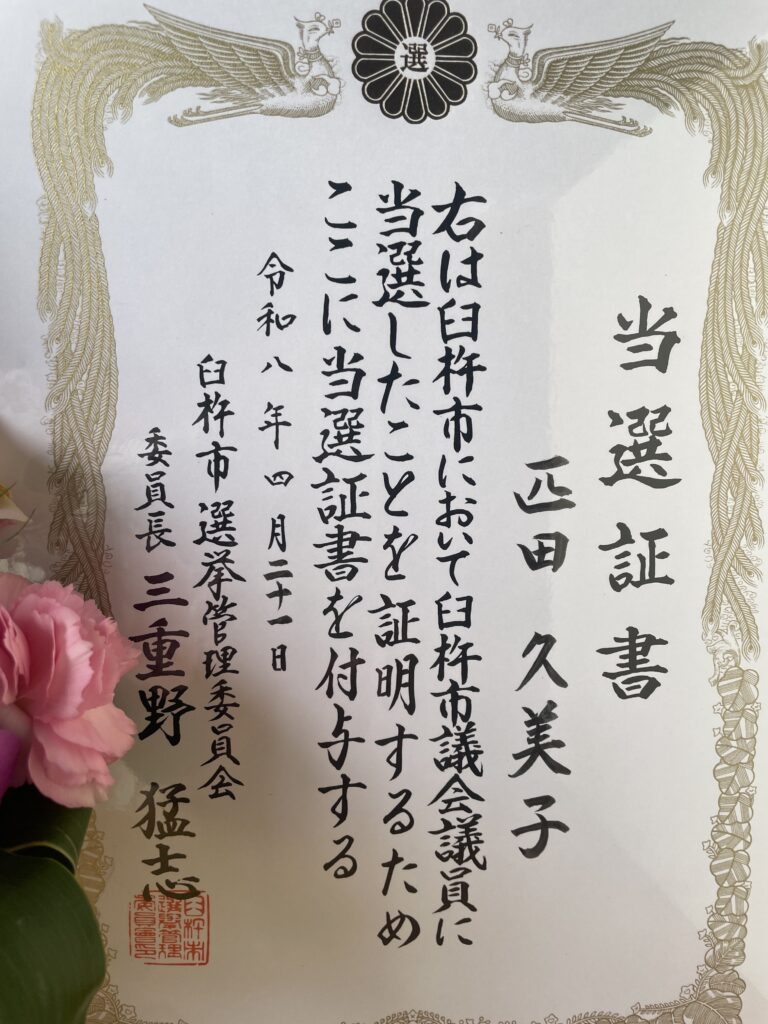 選
当選証書
匹田 久美子
右は臼杵市において臼杵市議会議員に
当選したことを証明するため
ここに当選証書を付与する
令和八年四月二十一日
臼杵市選挙管理委員会
委員長 三重野 猛志
臼杵市
選擧管理
委員會印